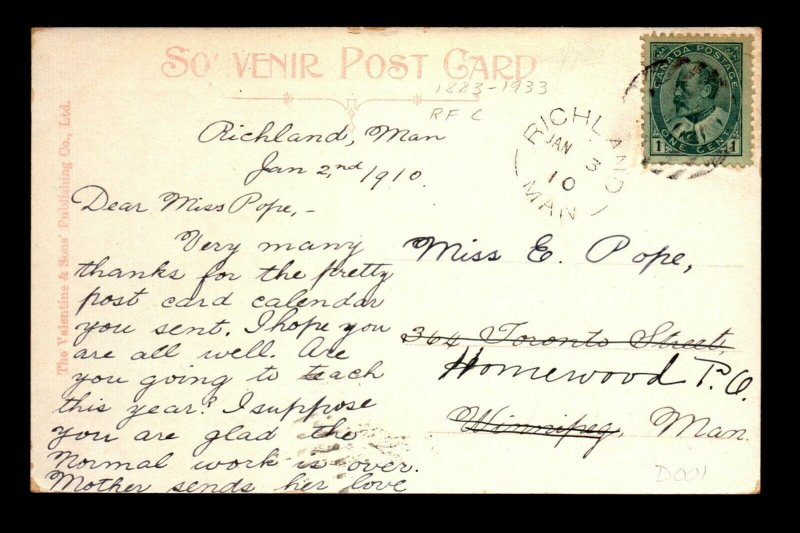 SOUVENIR POST CARD
1883-1933
RF C
The Valentine & Sons' Publishing Co., Ltd.
CANADA POSTAGE
1 ONE CENT 1
RICHLAND
JAN 3
10
MAN
Richland, Man
Jan 2,nd 1910.
Dear Miss Pope,-
Very many
thanks for the pretty
post card calendar
you sent. I hope you
are all well. Are
you going to teach
this year? I suppose
you are glad the
Normal work is over.
Mother sends her love
Miss E. Pope,
364 Toronto Street,
Homewood P.O.
Winnipeg, Man.
D001